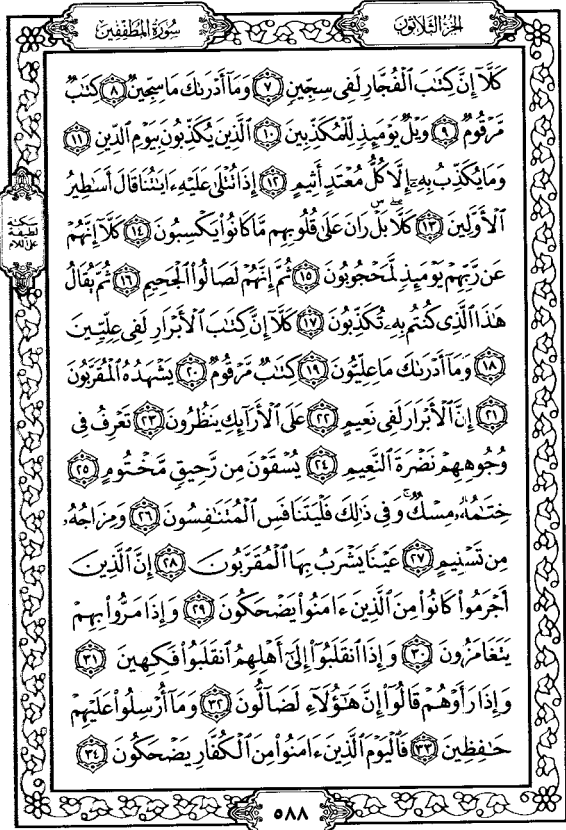 سُورَةُ المُطَفِّفِينَ
الجُزْءُ الثَّلَاثُونَ
كَلَّآ إِنَّ كِتَٰبَ ٱلۡفُجَّارِ لَفِى سِجِّينٍ ٧ وَمَآ أَدۡرَىٰكَ مَا سِجِّينٌ ٨ كِتَٰبٌ
مَّرۡقُومٌ ٩ وَيۡلٌ يَوۡمَئِذٍ لِّلۡمُكَذِّبِينَ ١٠ ٱلَّذِينَ يُكَذِّبُونَ بِيَوۡمِ ٱلدِّينِ ١١
وَمَا يُكَذِّبُ بِهِۦٓ إِلَّا كُلُّ مُعۡتَدٍ أَثِيمٍ ١٢ إِذَا تُتۡلَىٰ عَلَيۡهِ ءَايَٰتُنَا قَالَ أَسَٰطِيرُ
ٱلۡأَوَّلِينَ ١٣ كَلَّا بَلۡۜ رَانَ عَلَىٰ قُلُوبِهِم مَّا كَانُوا۟ يَكۡسِبُونَ ١٤ كَلَّآ إِنَّهُمۡ
سكتة
لطيفة
على اللام
عَن رَّبِّهِمۡ يَوۡمَئِذٍ لَّمَحۡجُوبُونَ ١٥ ثُمَّ إِنَّهُمۡ لَصَالُوا۟ ٱلۡجَحِيمِ ١٦ ثُمَّ يُقَالُ
هَٰذَا ٱلَّذِى كُنتُم بِهِۦ تُكَذِّبُونَ ١٧ كَلَّآ إِنَّ كِتَٰبَ ٱلۡأَبۡرَارِ لَفِى عِلِّيِّينَ
١٨ وَمَآ أَدۡرَىٰكَ مَا عِلِّيُّونَ ١٩ كِتَٰبٌ مَّرۡقُومٌ ٢٠ يَشۡهَدُهُ ٱلۡمُقَرَّبُونَ
٢١ إِنَّ ٱلۡأَبۡرَارَ لَفِى نَعِيمٍ ٢٢ عَلَى ٱلۡأَرَآئِكِ يَنظُرُونَ ٢٣ تَعۡرِفُ فِى
وُجُوهِهِمۡ نَضۡرَةَ ٱلنَّعِيمِ ٢٤ يُسۡقَوۡنَ مِن رَّحِيقٍ مَّخۡتُومٍ ٢٥
خِتَٰمُهُۥ مِسۡكٌ ۚ وَفِى ذَٰلِكَ فَلۡيَتَنَافَسِ ٱلۡمُتَنَٰفِسُونَ ٢٦ وَمِزَاجُهُۥ
مِن تَسۡنِيمٍ ٢٧ عَيۡنًا يَشۡرَبُ بِهَا ٱلۡمُقَرَّبُونَ ٢٨ إِنَّ ٱلَّذِينَ
أَجۡرَمُوا۟ كَانُوا۟ مِنَ ٱلَّذِينَ ءَامَنُوا۟ يَضۡحَكُونَ ٢٩ وَإِذَا مَرُّوا۟ بِهِمۡ
يَتَغَامَزُونَ ٣٠ وَإِذَا ٱنقَلَبُوٓا۟ إِلَىٰٓ أَهۡلِهِمُ ٱنقَلَبُوا۟ فَكِهِينَ ٣١
وَإِذَا رَأَوۡهُمۡ قَالُوٓا۟ إِنَّ هَٰٓؤُلَآءِ لَضَآلُّونَ ٣٢ وَمَآ أُرۡسِلُوا۟ عَلَيۡهِمۡ
حَٰفِظِينَ ٣٣ فَٱلۡيَوۡمَ ٱلَّذِينَ ءَامَنُوا۟ مِنَ ٱلۡكُفَّارِ يَضۡحَكُونَ ٣٤
٥٨٨